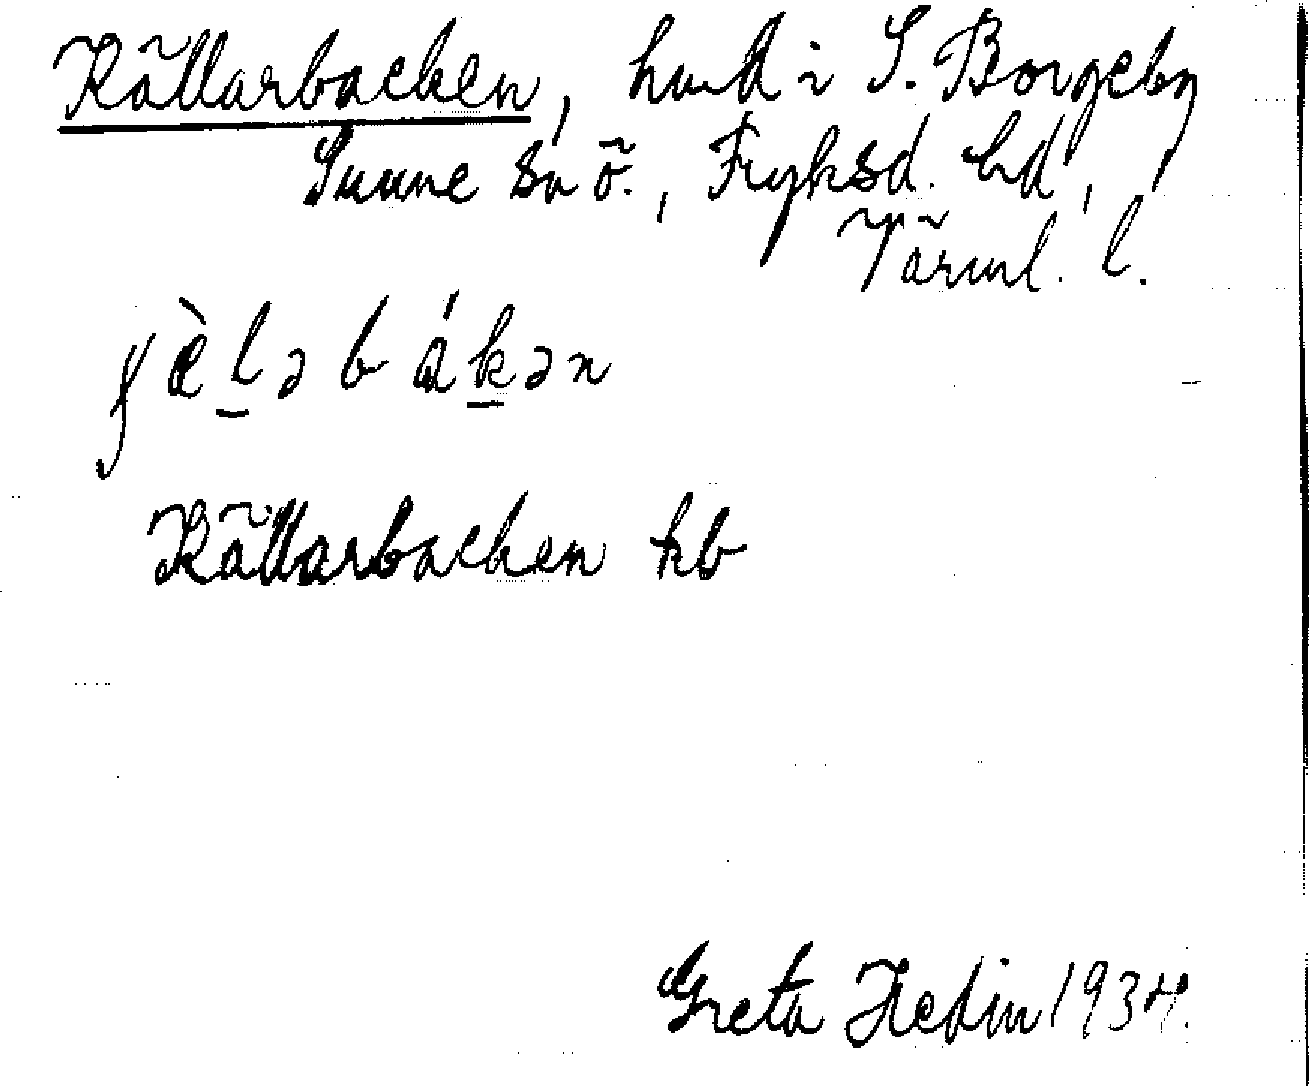 Källarbacken, hmd i S. Borgeby,
Sunne sn ö., Fryksd. hd,
Värml. l.
Källarbacken hb
Greta Hedin 1934.